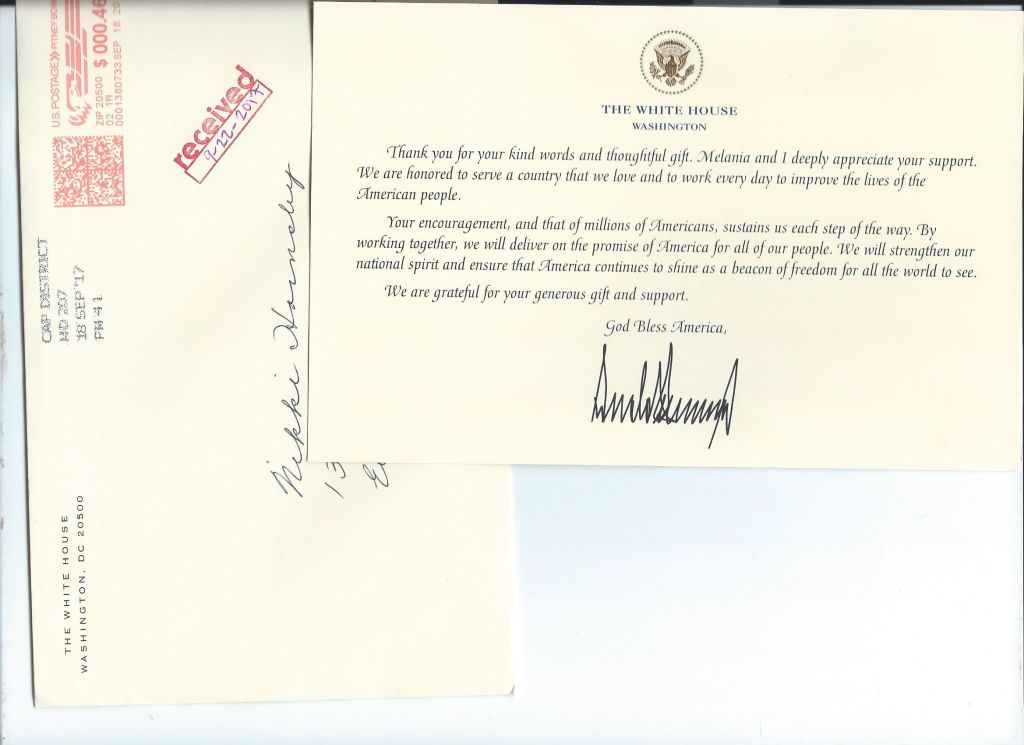 U.S. POSTAGE >> PITNEY BOW
ZIP 20500 $ 000.46
02 1W
0001380733 SEP 18 20
received
9-22-2017
CAP DISTRICT
MD 207
18 SEP '17
PM 4 1
THE WHITE HOUSE
WASHINGTON, DC 20500
Nikki Hornsby
13
THE WHITE HOUSE
WASHINGTON
Thank you for your kind words and thoughtful gift. Melania and I deeply appreciate your support.
We are honored to serve a country that we love and to work every day to improve the lives of the
American people.
Your encouragement, and that of millions of Americans, sustains us each step of the way. By
working together, we will deliver on the promise of America for all of our people. We will strengthen our
national spirit and ensure that America continues to shine as a beacon of freedom for all the world to see.
We are grateful for your generous gift and support.
God Bless America,